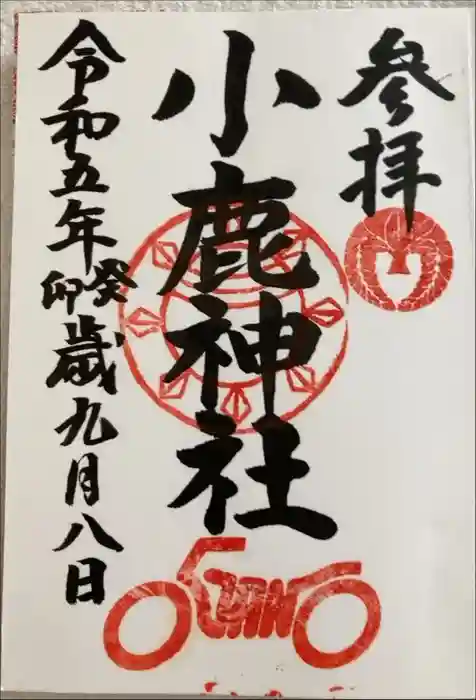 参拝
小鹿神社
令和五年癸卯歳九月八日